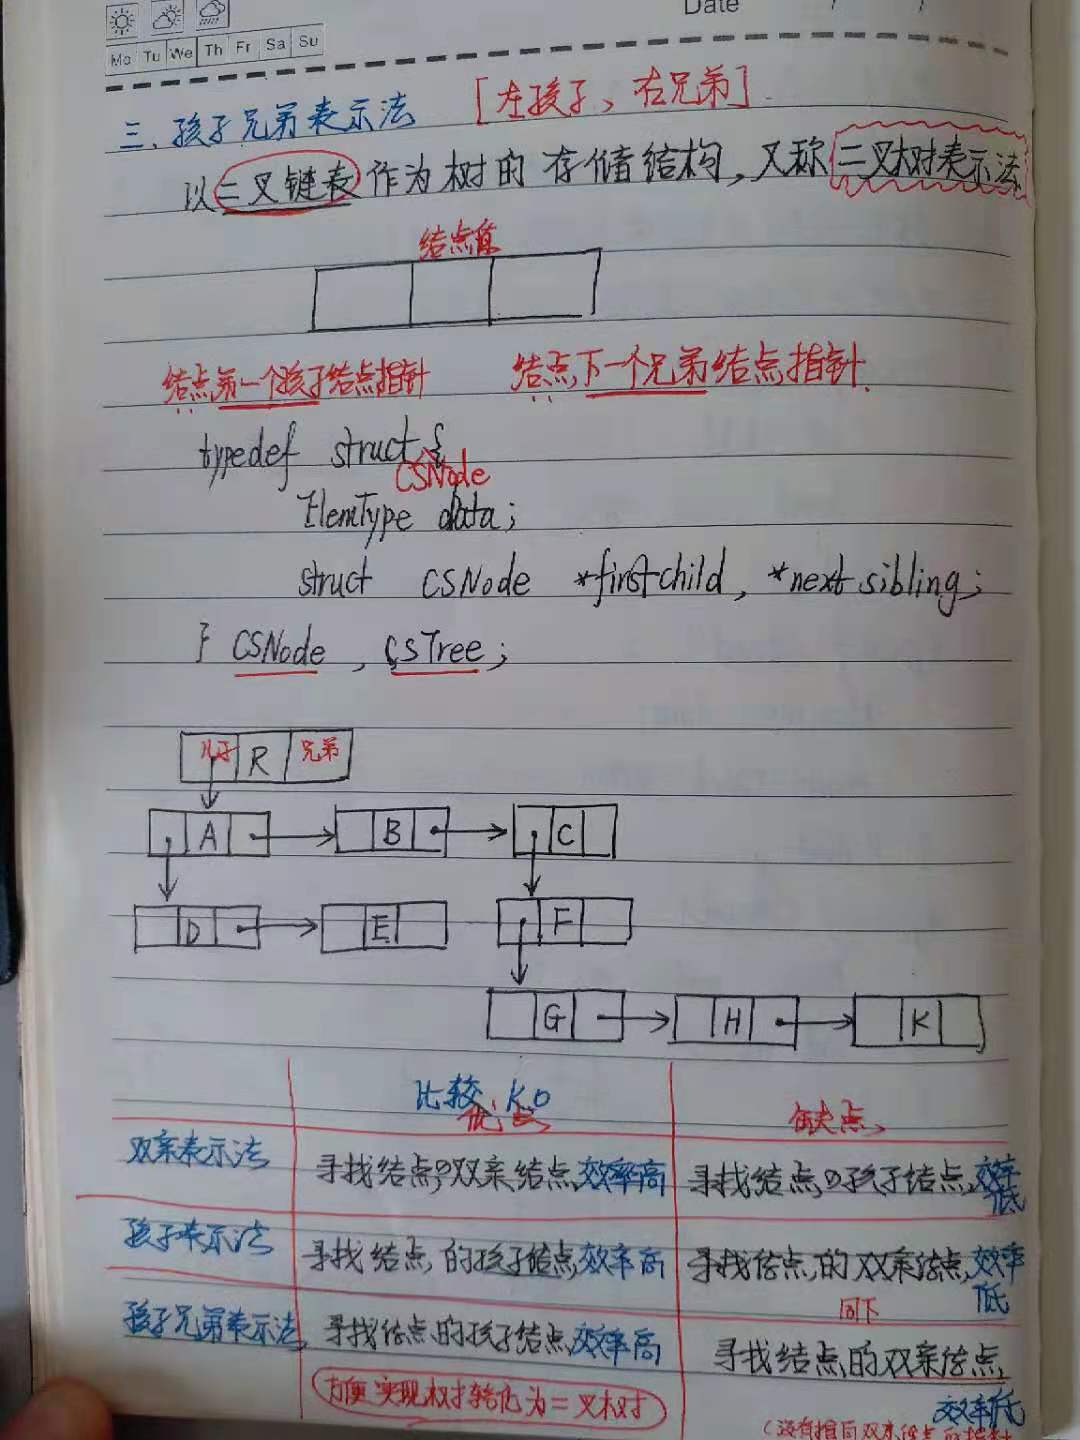 Date / /
Mo Tu We Th Fr Sa Su
三、孩子兄弟表示法 [左孩子、右兄弟]
以二叉链表作为树的存储结构,又称二叉树表示法
结点值
结点第一个孩子结点指针 结点下一个兄弟结点指针
typedef struct {
CSNode
ElemType data;
struct CSNode *firstchild, *nextsibling;
} CSNode, CSTree;
儿子 R 兄弟
A B C
D E F
G H K
比较、K.O
优点 缺点
双亲表示法 寻找结点的双亲结点效率高 寻找结点的孩子结点,效率低
孩子表示法 寻找结点的孩子结点效率高 寻找结点的双亲结点,效率低
同下
孩子兄弟表示法 寻找结点的孩子结点效率高 寻找结点的双亲结点,
方便实现树转化为二叉树 效率低
(没有指向双亲结点的指针